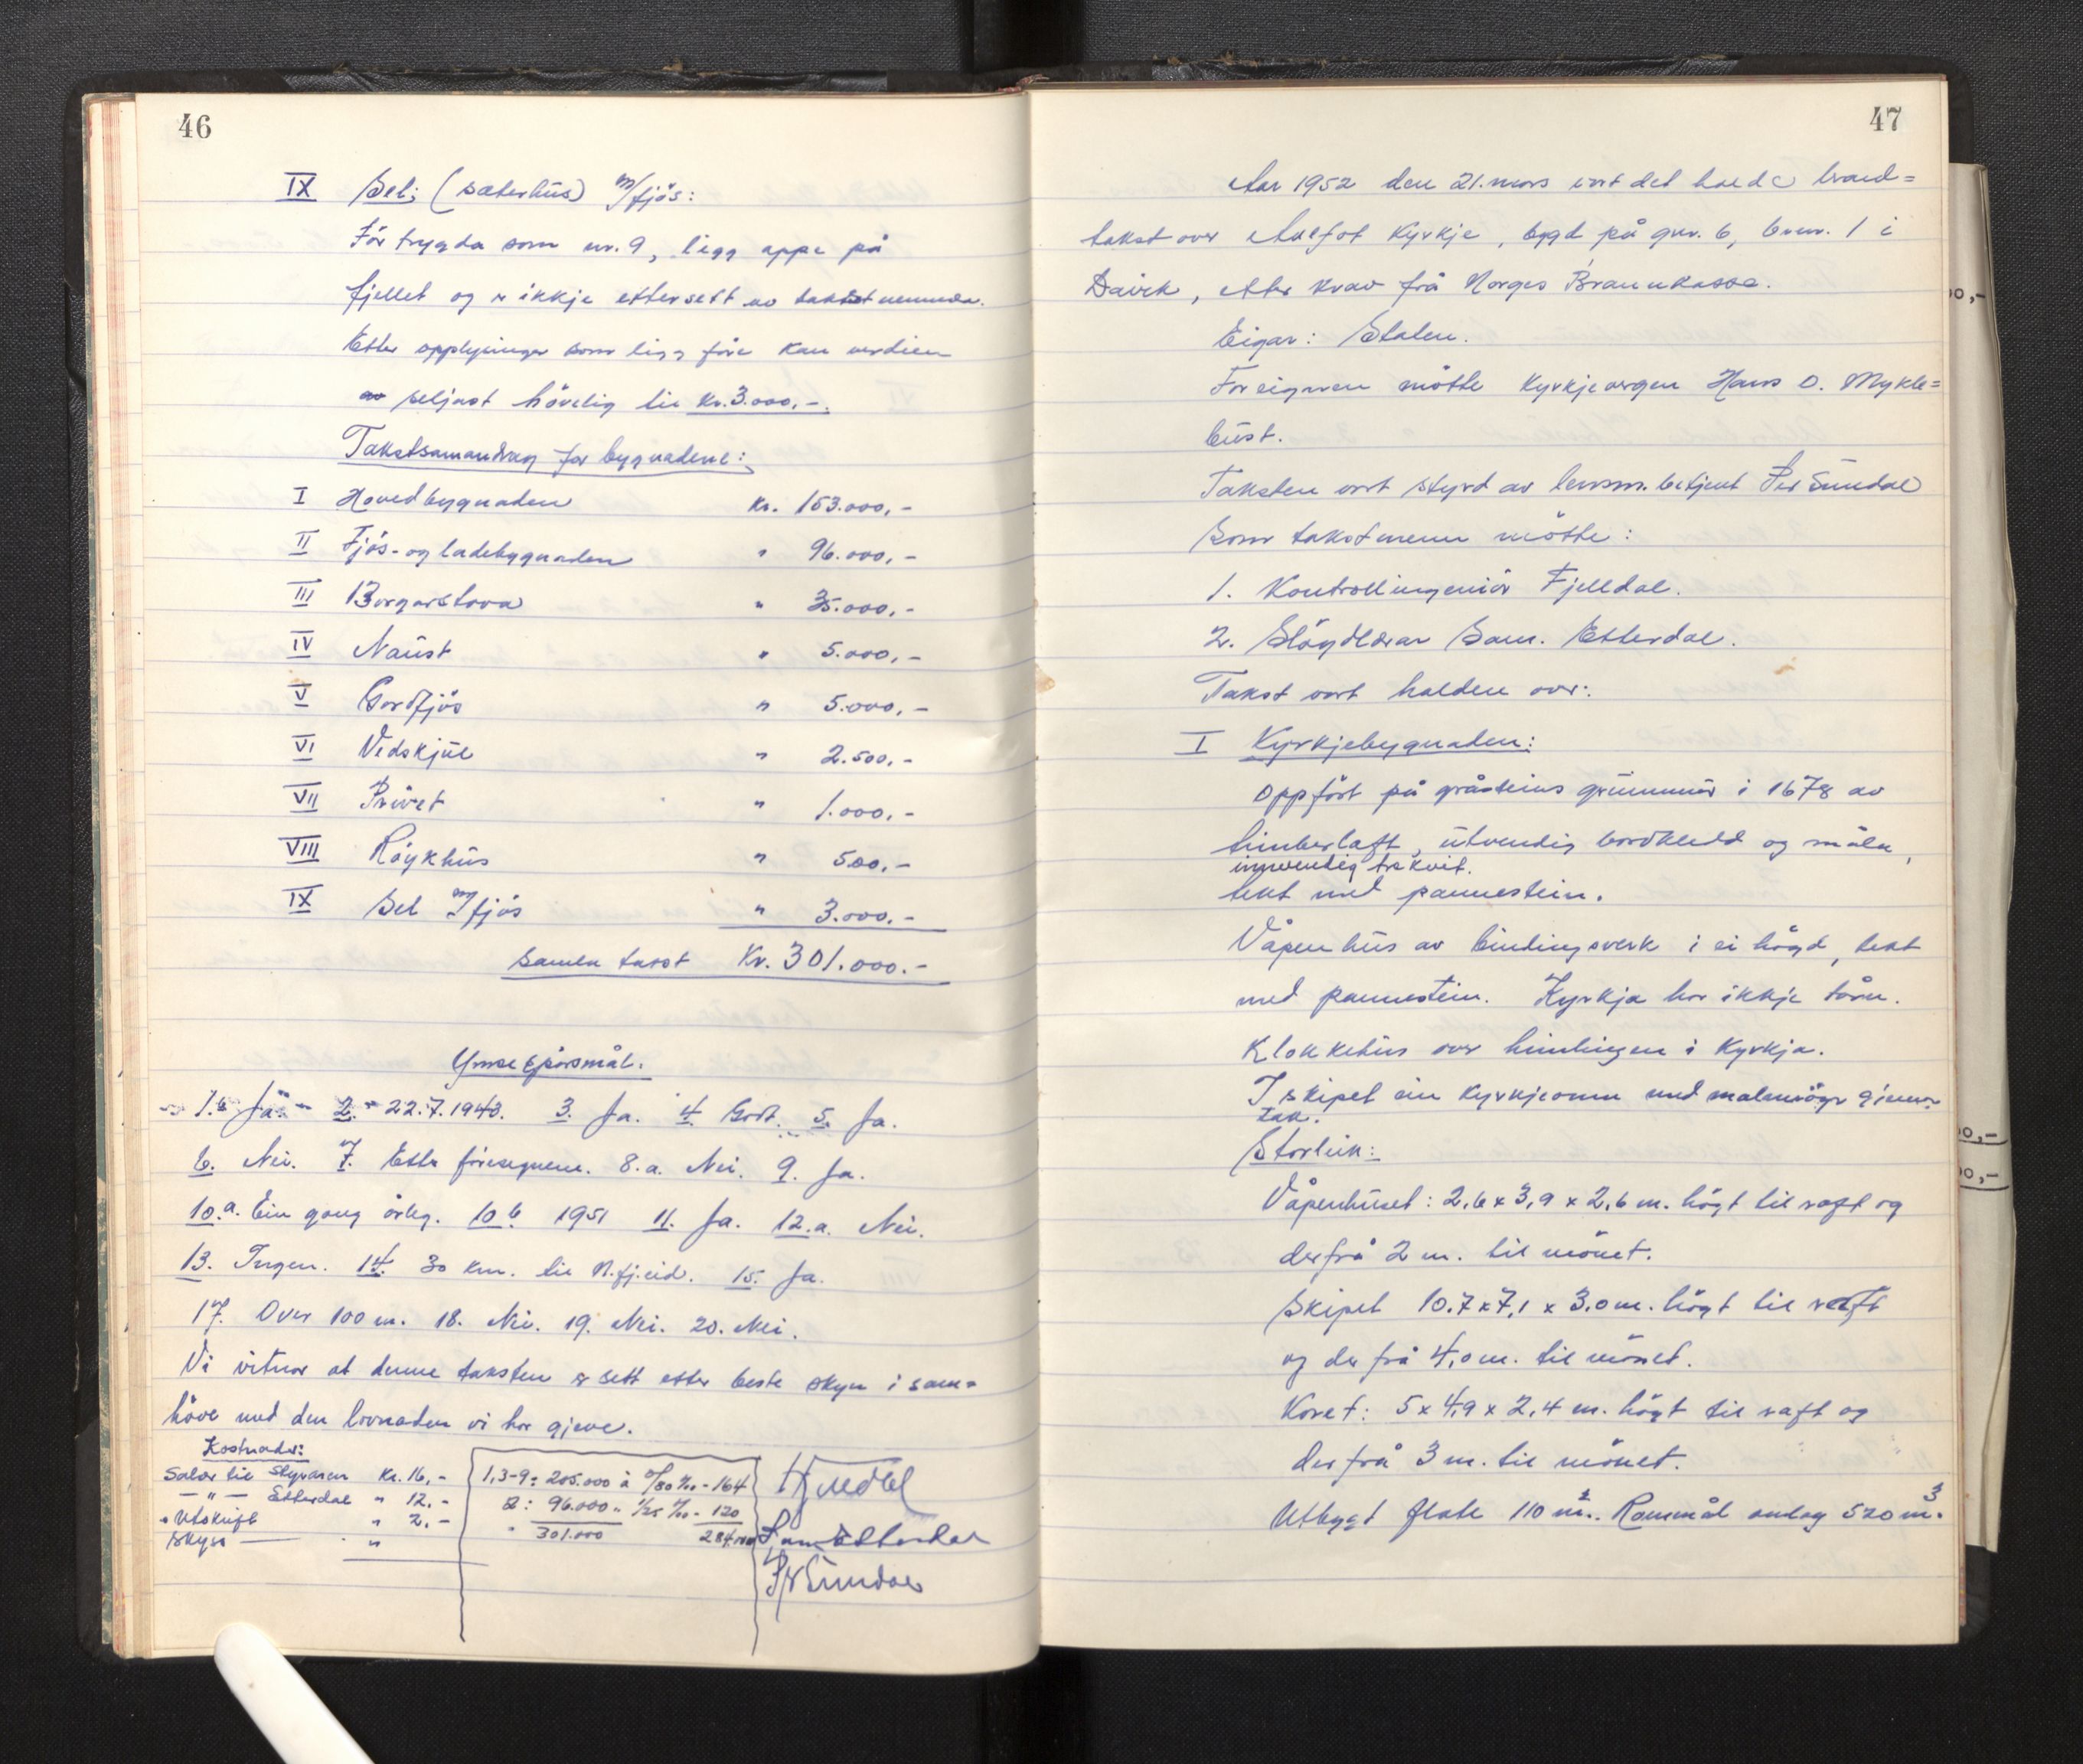 46
IX Sel: (sæterhus) m/fjös:
För trygda som nr. 9, ligg oppe på
fjellet og er ikkje ettersett av takstnemnda.
Etter opplysningar som ligg före kan verdien
av seljast hövelig til Kr. 3.000,-.
Takstsamandrag for bygnadene:
I Hovedbygnaden Kr. 153.000,-
II Fjös- og ladebygnaden " 96.000,-
III Borgarstova " 35.000,-
IV Naust " 5.000,-
V Gardfjös " 5.000,-
VI Vedskjul " 2.500,-
VII Privet " 1.000,-
VIII Röykhus " 500,-
IX Sel m/fjös " 3.000.-
Samla takst Kr. 301.000.-
Ymse spörsmål.
1. Ja. 2. 22.7.1948. 3. Ja. 4. Godt. 5. Ja.
6. Nei. 7. Etter föresegnene. 8.a. Nei. 9. Ja.
10.a. Ein gang årleg. 10 b 1951 11. Ja. 12.a. Nei.
13. Ingen. 14. 30 km. til N.fj.eid. 15. Ja.
17. Over 100 m. 18. Nei. 19. Nei. 20. Nei.
Vi vitnar at denne taksten er sett etter beste skyn i sam=
höve med den lovnaden vi har gjeve.
Kostnader:
Salær til Styraren Kr. 16,-
— " — Etterdal " 12.-
" Utskrift " 2.-
Skyss — "
1,3-9: 205.000 à 0/80 ‰ - 164
2: 96.000 " 1/25 ‰ - 120
301.000 284.
Sam Etterdal
Per Sundal
47
Aar 1952 den 21. mars vart det halde brand=
takst over Aalfot Kyrkje, bygd på gnr. 6, bnr. 1 i
Davik, etter krav frå Norges Brannkasse.
Eigar: Staten.
For eignen mötte Kyrkjevergen Hans O. Mykle=
bust.
Taksten vart styrd av lensm.betjent Per Sundal
Som takstmenn mötte:
1. Kontrollingeniör Fjelldal.
2. Slöydlærar Sam. Etterdal.
Takst vart halden over:
I Kyrkjebygnaden:
Oppfört på gråsteins grunnmur i 1678 av
timberlaft, utvendig bordkledd og måla,
innvendig trekvit.
tekt med pannestein.
Våpenhus av bindingsverk i ei högd, tekt
med pannestein. Kyrkja har ikkje tårn.
Klokkehus over himlingen i Kyrkja.
I skipet ein Kyrkjeomn med malmröyr gjennom
tak.
Storleik:
Våpenhuset: 2,6 x 3,9 x 2,6 m. högt til raft og
derfrå 2 m. til mönet.
Skipet 10.7 x 7,1 x 3.0 m. högt til raft
og der frå 4,0 m. til mönet.
Koret: 5 x 4,9 x 2,4 m. högt til raft og
derfrå 3 m. til mönet.
Utbygt flate 110 m². Rommål omlag 520 m³.
00,-
00,-
00,-